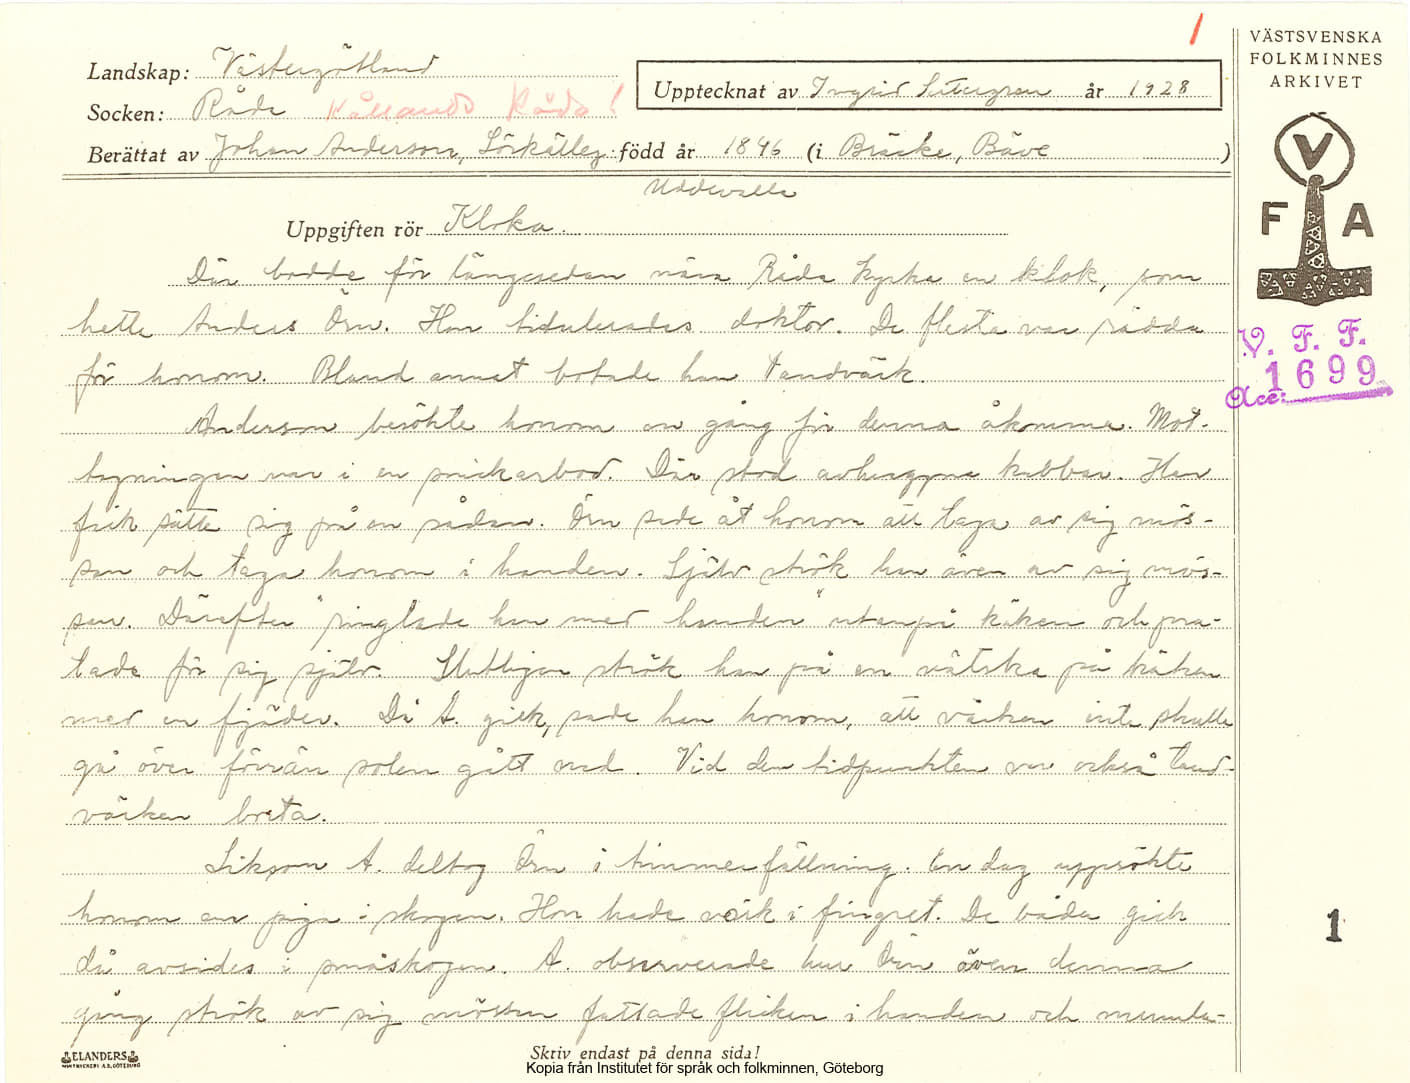 1
VÄSTSVENSKA
FOLKMINNES
ARKIVET
Landskap: Västergötland
Upptecknat av Ingrid år 1928
Socken: Råda Kållands Råda!
Berättat av Johan Anderson, född år 1846 (i Bräcke, Bäve)
Uddevalla
Uppgiften rör Kloka.
V
F A
Där bodde för längesedan nära Råda kyrka en klok, som
hette Anders Örn. Han titulerades doktor. De flesta var rädda
för honom. Bland annat botade han tandvärk.
V. F. F.
Acc: 1699
Anderson besökte honom en gång för denna åkomma. Mot-
tagningen var i en snickarbod. Där stod avhuggna kubbar. Han
fick sätta sig på en sådan. Örn sade åt honom att taga av sig mös-
san och taga honom i handen. Själv strök han även av sig mös-
san. Därefter "ringlade han med handen" utanpå käken och pra-
tade för sig själv. Slutligen strök han på en vätska på käken
med en fjäder. Då A. gick, sade han honom, att värken inte skulle
gå över förrän solen gått ned. Vid den tidpunkten var också tand-
värken borta.
Liksom A. deltog Örn i timmerfällning. En dag uppsökte
honom en piga i skogen. Hon hade värk i fingret. De båda gick
då avsides i småskogen. A. observerade hur Örn även denna
gång strök av sig mössan fattade flickan i handen och mumla-
1
ELANDERS
BOKTRYCKERI A.B. GÖTEBORG
Skriv endast på denna sida!
Kopia från Institutet för språk och folkminnen, Göteborg